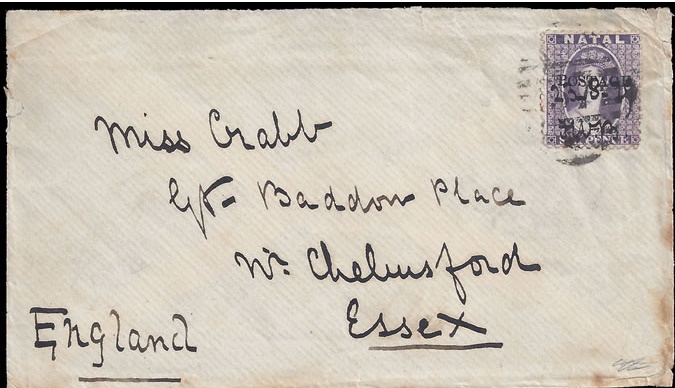 NATAL
POSTAGE
Miss Crabb
Gt. Baddon Place
Nr. Chelmsford
Essex
England